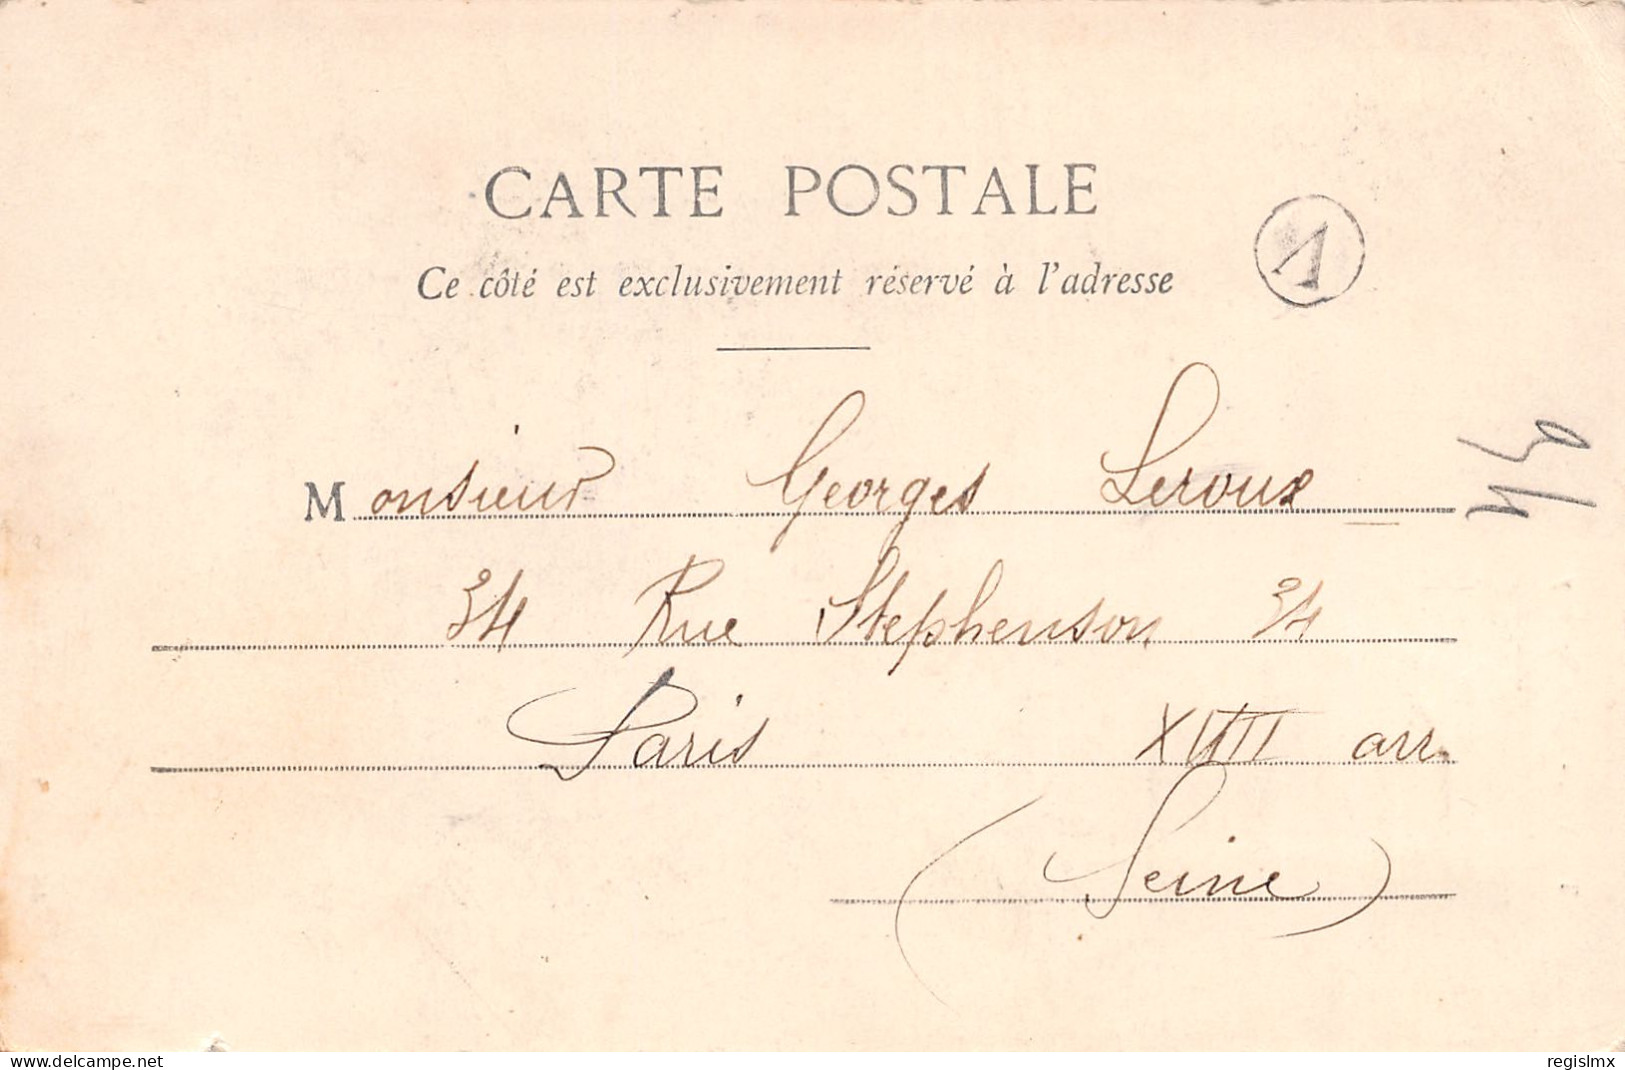 CARTE POSTALE
Ce côté est exclusivement réservé à l'adresse
Monsieur Georges Leroux
34 Rue Stephenson 34
Paris XVIII arr.
(Seine)
www.delcampe.net
regislmx